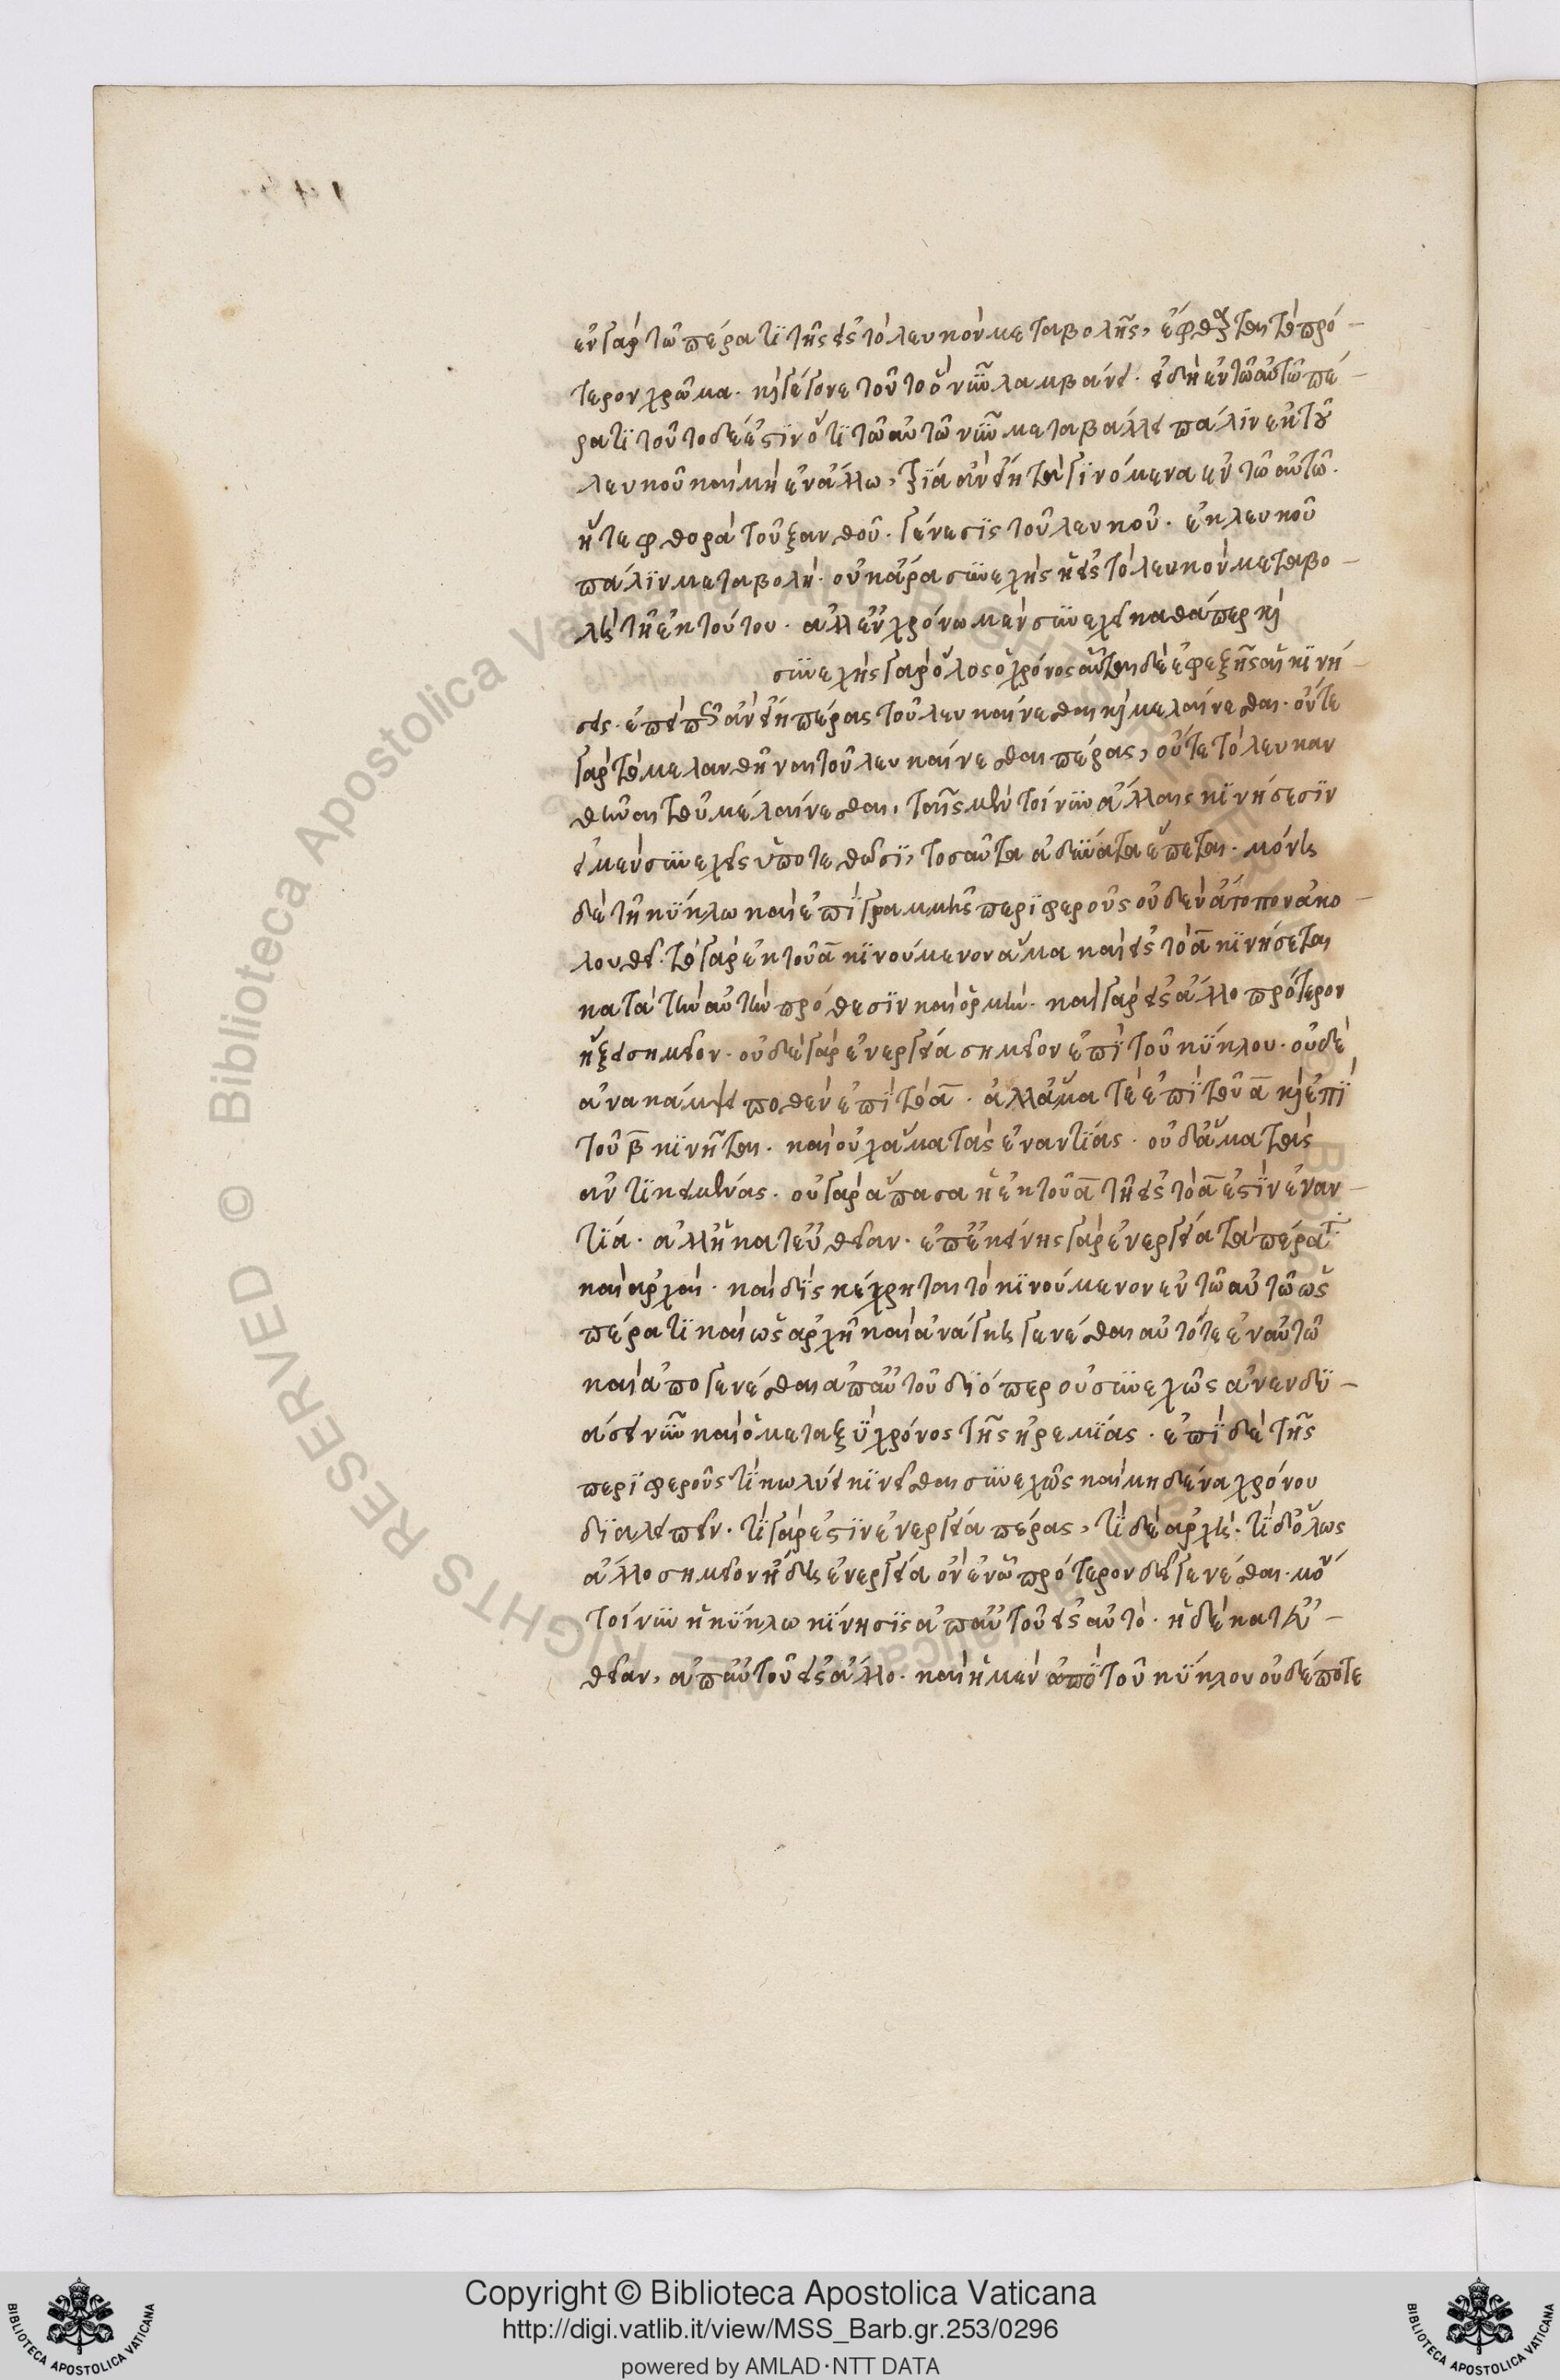 ἐν γὰρ τῶ πέρατι τῆς εἰς τὸ λευκὸν μεταβολῆς, ἔφθαρται τὸ πρό-
τερον χρῶμα. καὶ γέγονε τοῦτο ὃ νῦν λαμβάνει. εἰ δὴ ἐν τῶ αὐτῶ πέ-
ρατι τοῦτο δέ ἐστιν ὅτι τῶ αὐτῶ νῦν μεταβάλλει πάλιν ἐκ τοῦ
λευκοῦ καὶ μὴ ἐν ἄλλω, τρία ἂν εἴη τὰ γινόμενα ἐν τῶ αὐτῶ.
ἥ τε φθορὰ τοῦ ξανθοῦ. γένεσις τοῦ λευκοῦ. ἐκ λευκοῦ
πάλιν μεταβολή. οὐκ ἄρα συνεχὴς ἡ εἰς τὸ λευκὸν μεταβο-
λὴ τῆ ἐκ τούτου. ἀλλ' ἐν χρόνω μὲν συνεχεῖ καθάπερ καὶ
συνεχὴς γὰρ ὅλος ὁ χρόνος αὗται δὲ ἐφεξῆς αἱ κινή-
σεις. ἐπεὶ πῶς ἂν εἴη πέρας τοῦ λευκαίνεσθαι καὶ μελαίνεσθαι. οὔτε
γὰρ τὸ μελανθῆναι τοῦ λευκαίνεσθαι πέρας, οὔτε τὸ λευκαν
θῆναι τοῦ μελαίνεσθαι, ταῖς μὲν τοίνυν ἄλλαις κινήσεσιν
εἰ μὲν συνεχεῖς ὑποτεθῶσι, τοσαῦτα ἀδύνατα ἕπεται. μόνη
δὲ τῆ κύκλω καὶ ἐπὶ γραμμῆς περιφεροῦς οὐδὲν ἄτοπον ἀκο-
λουθεῖ. τὸ γὰρ ἐκ τοῦ α κινούμενον ἅμα καὶ εἰς τὸ α κινήσεται
κατὰ τὴν αὐτὴν πρόθεσιν καὶ ὁρμήν. καὶ γὰρ εἰς ἄλλο πρότερον
ἥξει σημεῖον. οὐδὲ γὰρ ἐνεργείᾳ σημεῖον ἐπὶ τοῦ κύκλου. οὐδὲ
ἀνακάμψει ποθὲν ἐπὶ τὸ α. ἀλλ' ἅμα τε ἐπὶ τοῦ α καὶ ἐπὶ
τοῦ β κινῆται. καὶ οὐχ ἅμα τὰς ἐναντίας. οὐδ' ἅμα τὰς
ἀντικειμένας. οὐ γὰρ ἅπασα ἡ ἐκ τοῦ α τῆ εἰς τὸ α ἐστὶν ἐναν-
τία. ἀλλ' ἡ κατ' εὐθεῖαν. ἐπ' ἐκείνης γὰρ ἐνεργεία τὰ πέρατα
καὶ ἀρχαί. καὶ δὶς κέχρηται τὸ κινούμενον ἐν τῶ αὐτῶ ὡς
πέρατι καὶ ὡς ἀρχῆ καὶ ἀνάγκη γενέσθαι αὐτό τε ἐν αὐτῶ
καὶ ἀπογενέσθαι ἀπ' αὐτοῦ διόπερ οὐ συνεχῶς ἂν ἐν δυ-
άσει νῦν καὶ ὁ μεταξὺ χρόνος τῆς ἠρεμίας. ἐπὶ δὲ τῆς
περιφεροῦς τί κωλύει κινεῖσθαι συνεχῶς καὶ μηδένα χρόνον
διαλείπειν. τί γάρ ἐστιν ἐνεργεία πέρας, τί δὲ ἀρχή. τί δ' ὅλως
ἄλλο σημεῖον ἤδη ἐνεργεία ὂν ἐν ὧ πρότερον δεῖ γενέσθαι.
τοίνυν ἡ κύκλω κίνησις ἀπ' αὐτοῦ εἰς αὐτό. ἡ δὲ κατ' εὐ-
θεῖαν, ἀπ' αὐτοῦ εἰς ἄλλο. καὶ ἡ μὲν ἀπὸ τοῦ κύκλου οὐδέποτε
Copyright © Biblioteca Apostolica Vaticana
http://digi.vatlib.it/view/MSS_Barb.gr.253/0296
powered by AMLAD·NTT DATA